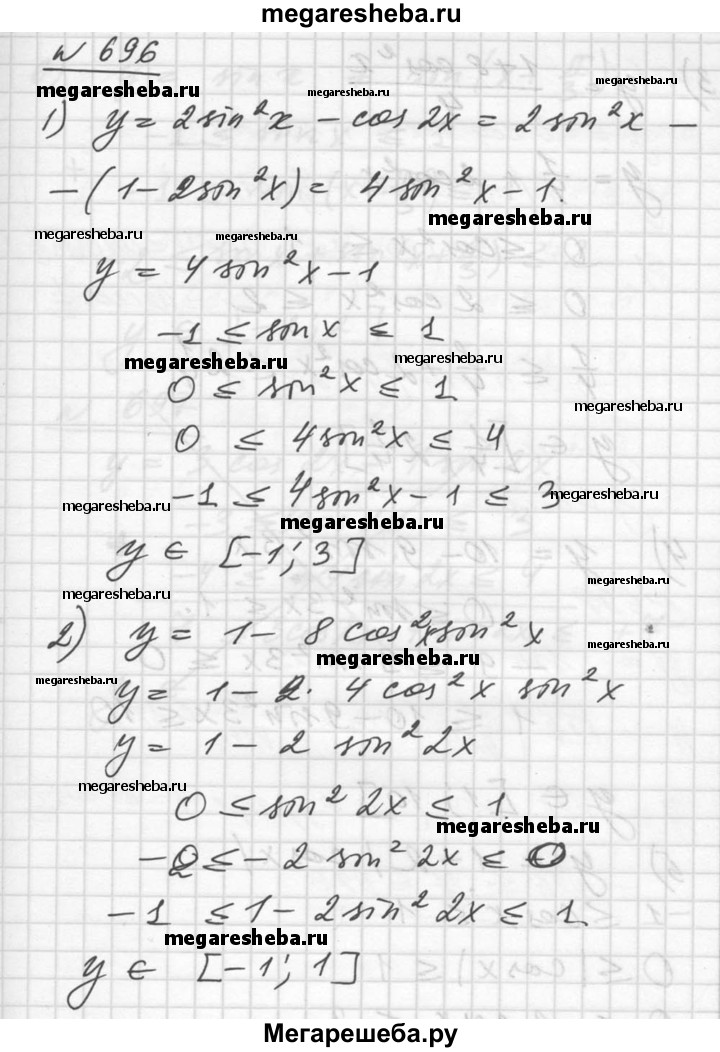 megaresheba.ru
№ 696
megaresheba.ru megaresheba.ru megaresheba.ru
1) y = 2sin²x − cos 2x = 2sin²x −
− (1 − 2sin²x) = 4sin²x − 1.
megaresheba.ru
megaresheba.ru megaresheba.ru
y = 4sin²x − 1
−1 ≤ sin x ≤ 1
megaresheba.ru megaresheba.ru
0 ≤ sin²x ≤ 1
megaresheba.ru
0 ≤ 4sin²x ≤ 4
−1 ≤ 4sin²x − 1 ≤ 3
megaresheba.ru megaresheba.ru
megaresheba.ru
y ∈ [−1; 3]
megaresheba.ru
megaresheba.ru
2) y = 1 − 8cos²x sin²x
megaresheba.ru megaresheba.ru
megaresheba.ru
y = 1 − 2 · 4cos²x sin²x
y = 1 − 2 sin²2x
megaresheba.ru
0 ≤ sin² 2x ≤ 1
megaresheba.ru
−2 ≤ −2 sin² 2x ≤ 0
−1 ≤ 1 − 2sin² 2x ≤ 1
megaresheba.ru
y ∈ [−1; 1]
Мегарешеба.ру